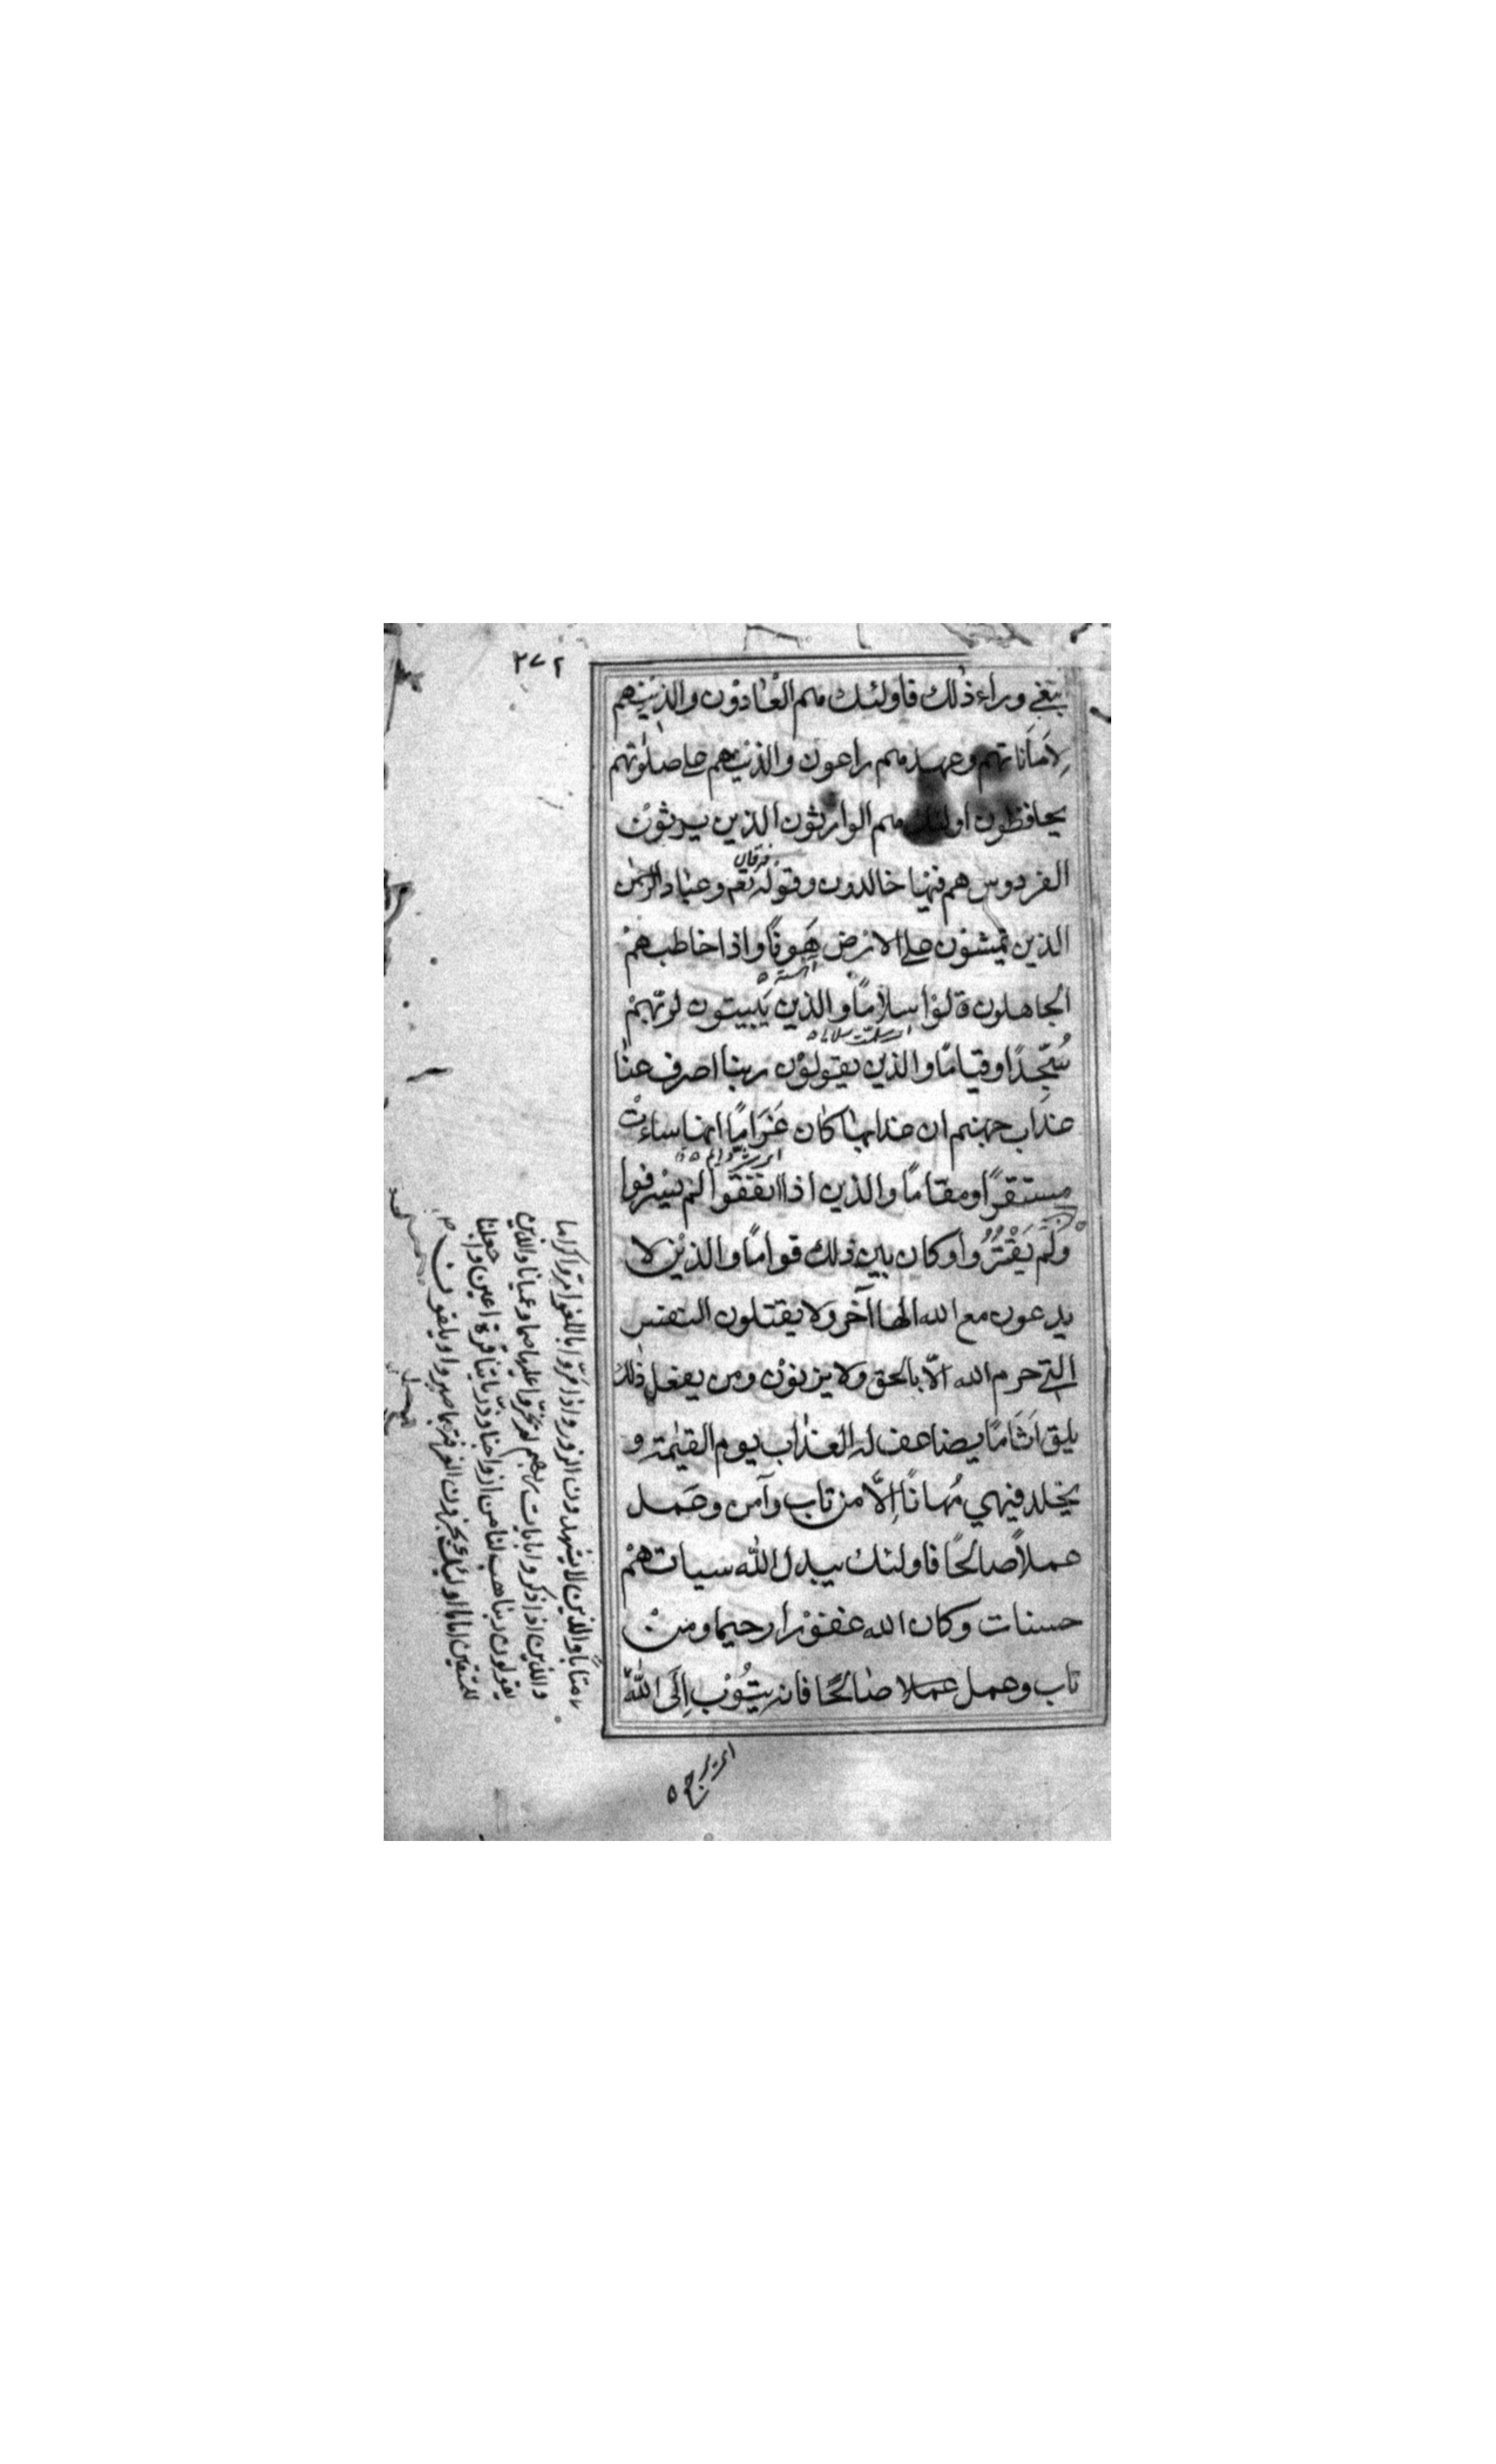 ٢٧٢
ابتغى وراء ذلك فاولئك هم العادون والذين هم
لِاَمَاناتهم وعهدهم راعون والذين هم على صلوتهم
يحافظون اولئك هم الوارثون الذين يرثون
الفردوس هم فيها خالدون وقوله تعم وعباد الرحمن
فرقان
الذين يمشون على الارض هَونًا واذا خاطبهم
اهسته
الجاهلون قالوا سلامًا والذين يَبيتون لربّهم
سُجّدًا وقيامًا والذين يقولون ربنا اصرف عنا
عذاب جهنم ان عذابها كان غَرَامًا انها ساءت
مستقرًا ومقامًا والذين اذا انفقوا لم يسرفوا
وَلَم يَقْتُرُوا وكان بين ذلك قوامًا والذين لا
يدعون مع الله الها آخر ولا يقتلون النفس
التي حرم الله الّا بالحق ولا يزنون ومن يفعل ذلك
يلق اَثَامًا يضاعف له العذاب يوم القيمة و
يخلد فيهي مُهانًا اِلَّا من تاب وآمن وعَمل
عملاً صالحًا فاولئك يبدل الله سيات هم
حسنات وكان الله غفورا رحيما ومن
تاب وعمل عملا صالحًا فانه يتُوب اِلَى اللّٰه
متابًا والذين لا يشهدون الزور واذا مَرّوا باللغو امرّوا كراما
والذين اذا ذكروا بايات ربهم لم يخرّوا عليها صما وعميانا والذين
يقولون ربنا هب لنا من ازواجنا وذرياتنا قرة اعين واجعلنا
للمتقين اماما اولئك يجزون الغرفة بما صبروا ويلقون